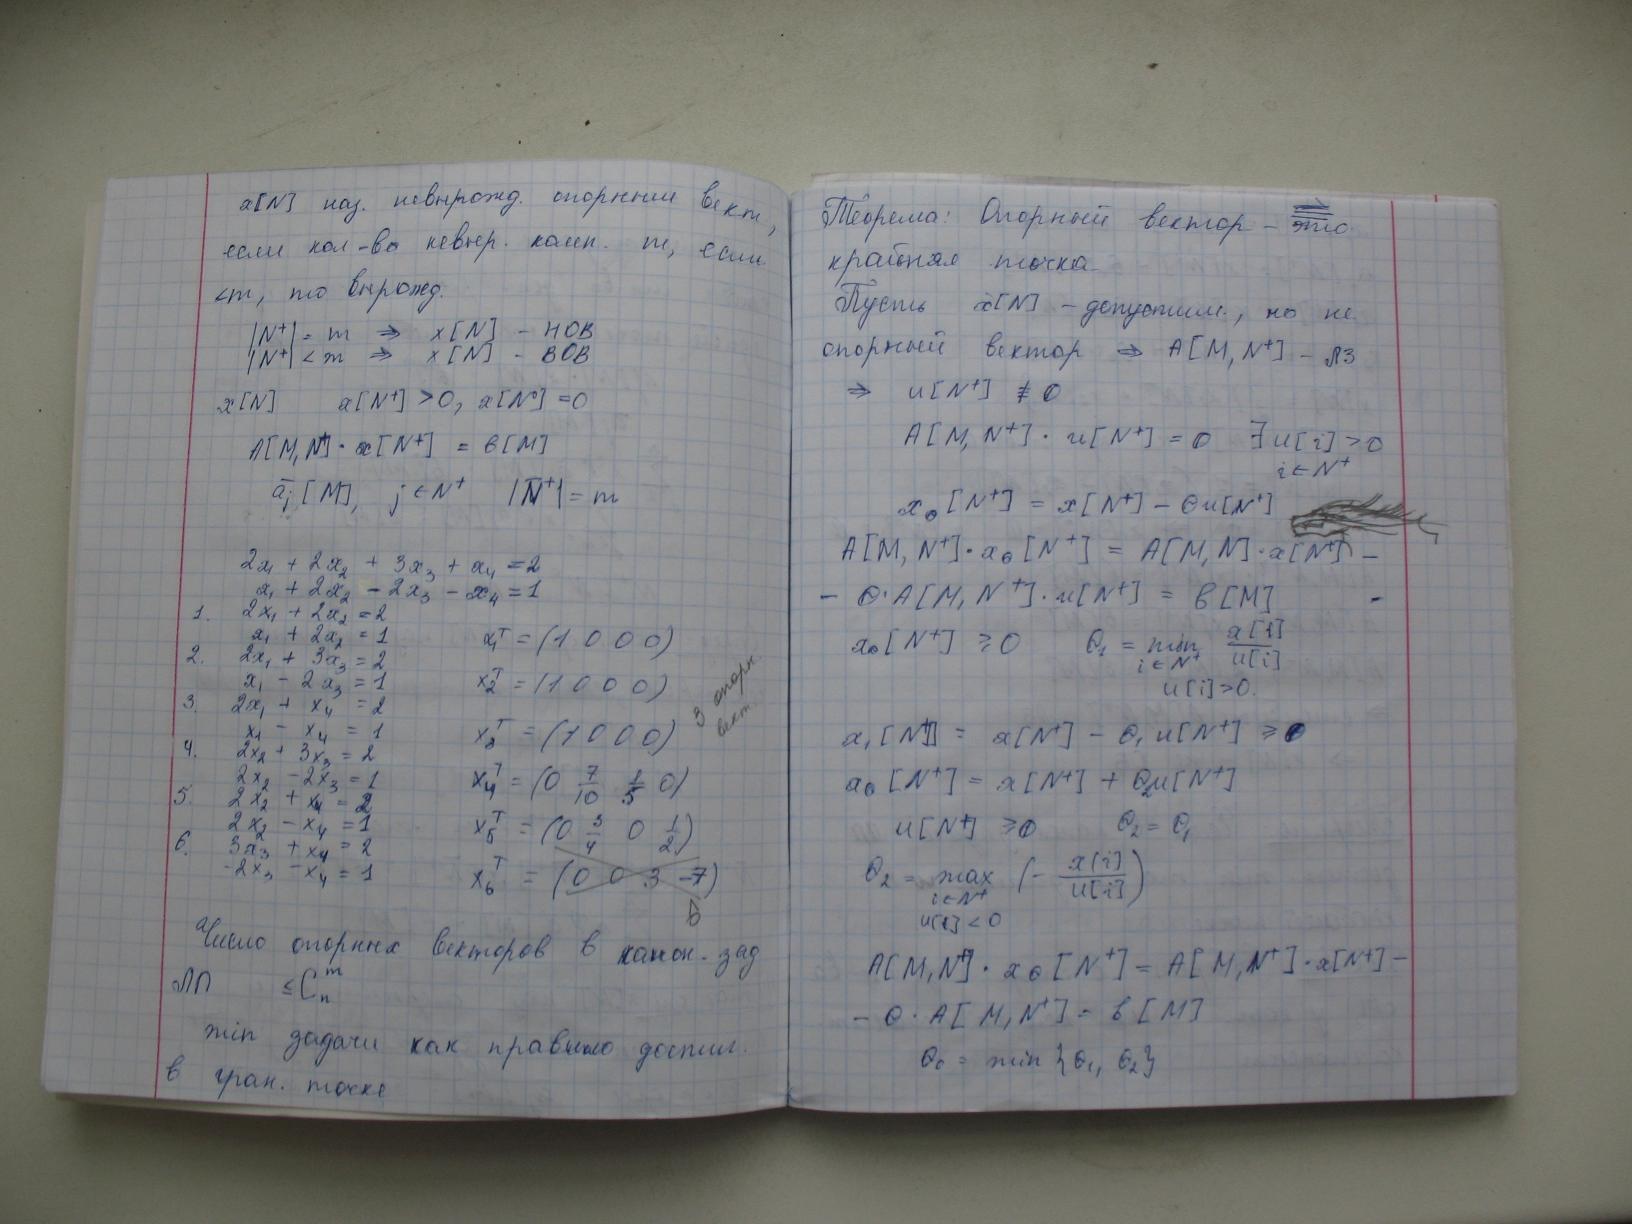 x[N] наз. невырожд. опорным вект.,
если кол-во невыр. комп. m, если
<m, то вырожд.
|N⁺| = m ⇒ x[N] - НОВ
|N⁺| < m ⇒ x[N] - ВОВ
x[N] x[N⁺] > 0, x[N⁰] = 0
A[M,N⁺]·x[N⁺] = b[M]
āⱼ[M], j∈N⁺ |N⁺| = m
2x₁ + 2x₂ + 3x₃ + x₄ = 2
x₁ + 2x₂ - 2x₃ - x₄ = 1
1. 2x₁ + 2x₂ = 2
x₁ + 2x₂ = 1 x₁ᵀ = (1 0 0 0)
2. 2x₁ + 3x₃ = 2
x₁ - 2x₃ = 1 x₂ᵀ = (1 0 0 0)
3. 2x₁ + x₄ = 2
x₁ - x₄ = 1 x₃ᵀ = (1 0 0 0)
3 опорн.
вект.
4. 2x₂ + 3x₃ = 2
2x₂ - 2x₃ = 1 x₄ᵀ = (0 7/10 1/5 0)
5. 2x₂ + x₄ = 2
2x₂ - x₄ = 1 x₅ᵀ = (0 3/4 0 1/2)
6. 3x₃ + x₄ = 2
-2x₃ - x₄ = 1 x₆ᵀ = (0 0 3 -7)
Число опорных векторов в канон. зад
ЛП ≤ Cₙᵐ
min задачи как правило достиг.
в гран. точке
Теорема: Опорный вектор - это
крайняя точка
Пусть x[N] - допустим., но не
опорный вектор ⇒ A[M,N⁺] - ЛЗ
⇒ u[N⁺] ≠ 0
A[M,N⁺]·u[N⁺] = 0 ∃ u[i] > 0
i∈N⁺
x_θ[N⁺] = x[N⁺] - θu[N⁺]
A[M,N⁺]·x_θ[N⁺] = A[M,N]·x[N⁺] -
- θ·A[M,N⁺]·u[N⁺] = b[M] -
x_θ[N⁺] ≥ 0 θ₁ = min x[i]/u[i]
i∈N⁺
u[i]>0.
x₁[N⁺] = x[N⁺] - θ₁u[N⁺] ≥ 0
x_θ[N⁺] = x[N⁺] + θ₂u[N⁺]
u[N⁺] ≥ 0 θ₂ = θ₁
θ₂ = max (- x[i]/u[i])
i∈N⁺
u[i]<0
A[M,N⁺]·x_θ[N⁺] = A[M,N⁺]·x[N⁺] -
- θ·A[M,N⁺] = b[M]
θ₀ = min {θ₁, θ₂}